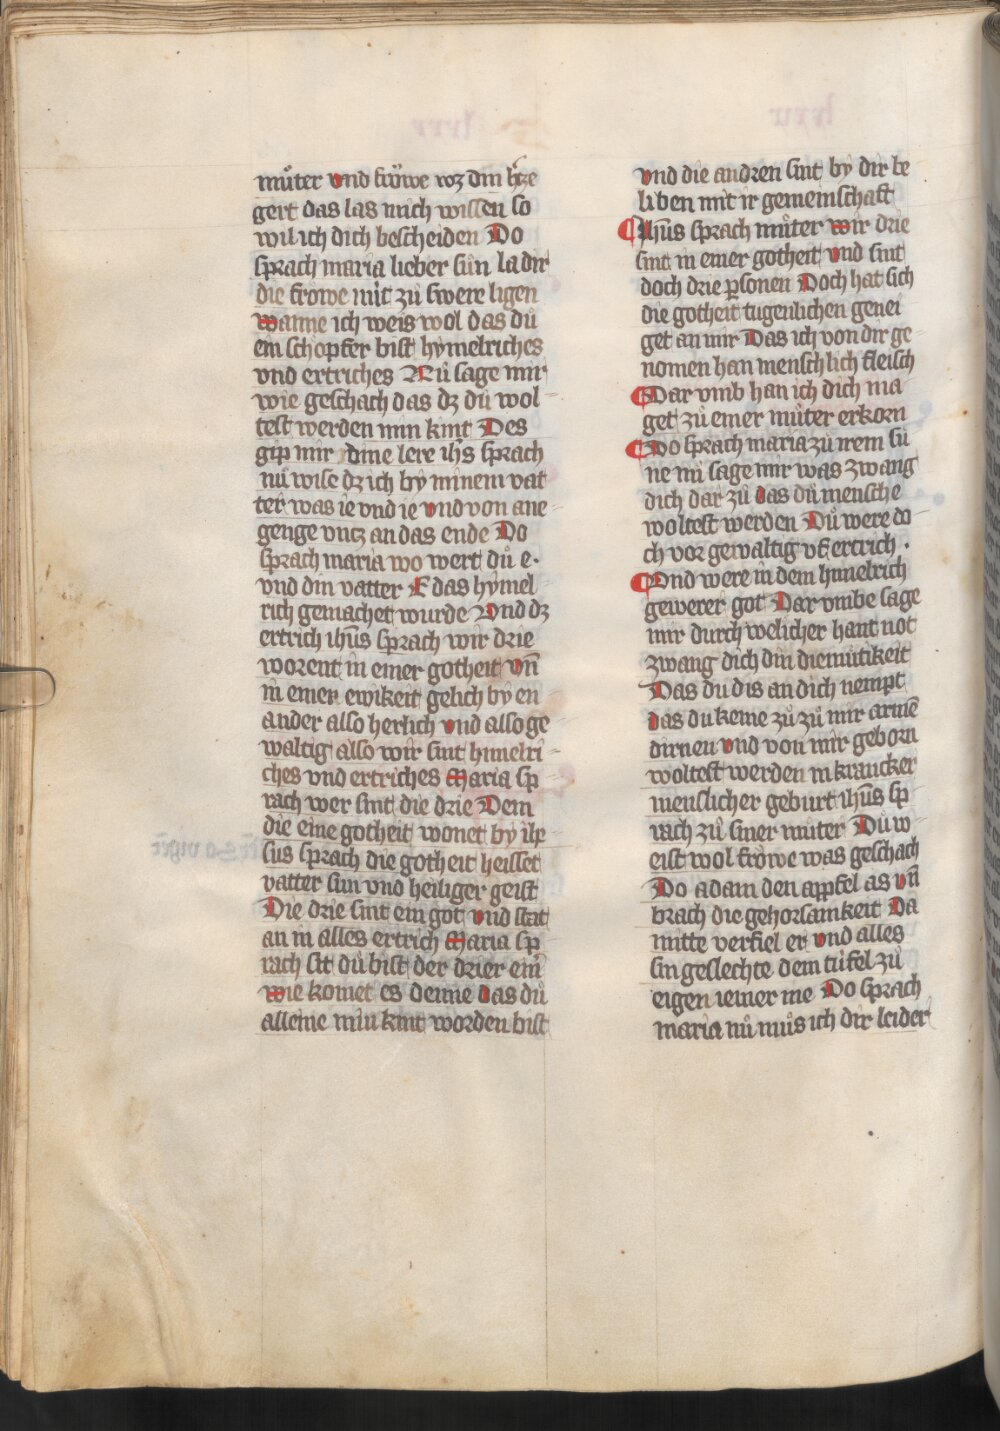 muͦter vnd froͮwe wz din h'tze
gert das las mich wissen so
wil ich dich bescheiden Do
sprach maria lieber sun la dir
die froͮwe nuͥt zuͦ swere ligen
wanne ich weis wol das duͦ
ein schopfer bist hymelriches
vnd ertriches Nuͦ sage mir
wie geschach das dz duͦ wol
test werden min kint Des
gip mir dine lere ihs sprach
nuͦ wise dz ich by minem vat
ter was ie vnd ie vnd von ane
genge vntz an das ende Do
sprach maria wo wert duͦ e·
vnd din vatter E das hymel
rich gemachet wurde Vnd dz
ertrich ihūs sprach wir drie
worent in einer gotheit vn̄
in einer ewikeit gelich by en
ander also herlich vnd also ge
waltig also wir sint himelri
ches vnd ertriches Maria sp
rach wer sint die drie Dem
die eine gotheit wonet by ihe
sus sprach die gotheit heisset
vatter sun vnd heiliger geist
Die drie sint ein got vnd stat
an in alles ertrich Maria sp
rach sit duͦ bist der drier ein
wie komet es denne das duͦ
alleine min kint worden bist
vnd die andren sint by dir be
liben mit ir gemeinschaft
ihūs sprach muͦter wir drie
sint in einer gotheit vnd sint
doch drie p̱sonen Doch hat sich
die gotheit tugenlichen genei
get an mir Das ich von dir ge
nomen han menschlich fleisch
Dar vmb han ich dich ma
get zuͦ einer muͦter erkorn
Do sprach maria zuͦ irem su
ne nu sage mir was zwang
dich dar zuͦ das duͦ mensche
woltest werden Duͦ were do
ch vor gewaltig vf ertrich ·
Vnd were in dem himelrich
gewerer got Dar vmbe sage
mir durch welicher hant not
zwang dich din diemuͤtikeit
Das du dis an dich nempt
das du keme zuͦ zuͦ mir armē
dirnen vnd von mir geborn
woltest werden in krancker
menslicher geburt ihūs sp
rach zuͦ siner muͦter Duͦ w
eist wol froͮwe was geschach
Do adam den appfel as vn̄
brach die gehorsamkeit Da
mitte verfiel er vnd alles
sin geslechte dem tuͤfel zuͦ
eigen iemer me Do sprach
maria nuͦ muͦs ich dir leider